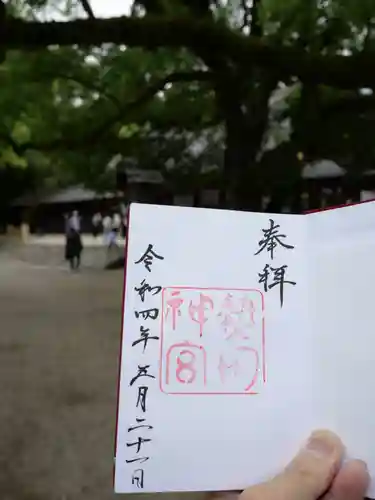 奉拝
熱田神宮
令和四年五月二十一日